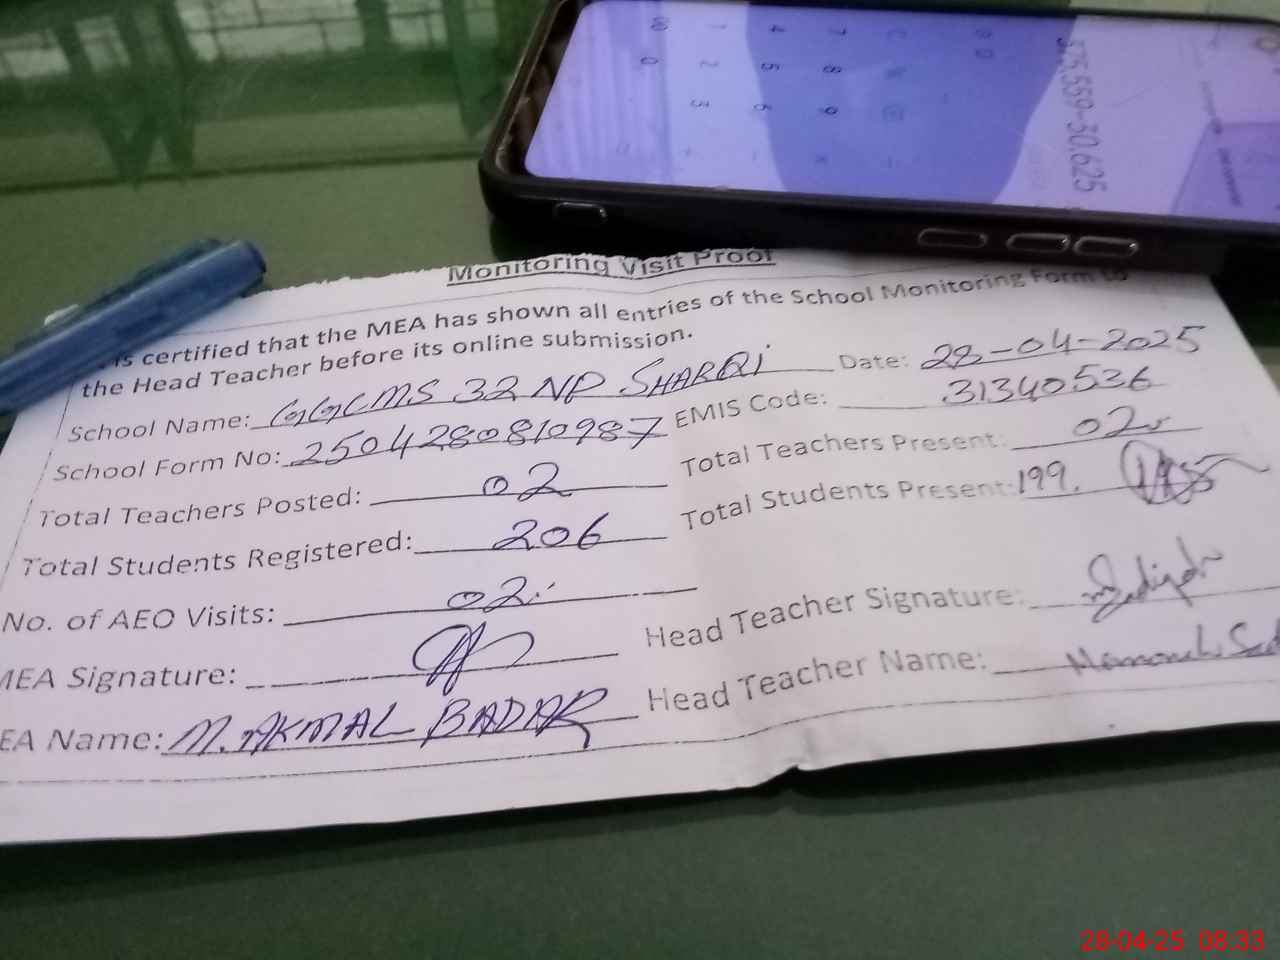 Monitoring Visit Proof
is certified that the MEA has shown all entries of the School Monitoring Form to
the Head Teacher before its online submission.
School Name: GGCMS 32 NP SHARQI Date: 28-04-2025
School Form No: 2504280810987 EMIS Code: 31340536
Total Teachers Posted: 02 Total Teachers Present: 02
Total Students Registered: 206 Total Students Present: 199.
No. of AEO Visits: 02
MEA Signature: Head Teacher Signature:
EA Name: M. AKMAL BADAR Head Teacher Name:
375,559-30,625
7 8 9
4 5 6
1 2 3
00 0
28-04-25 08:33